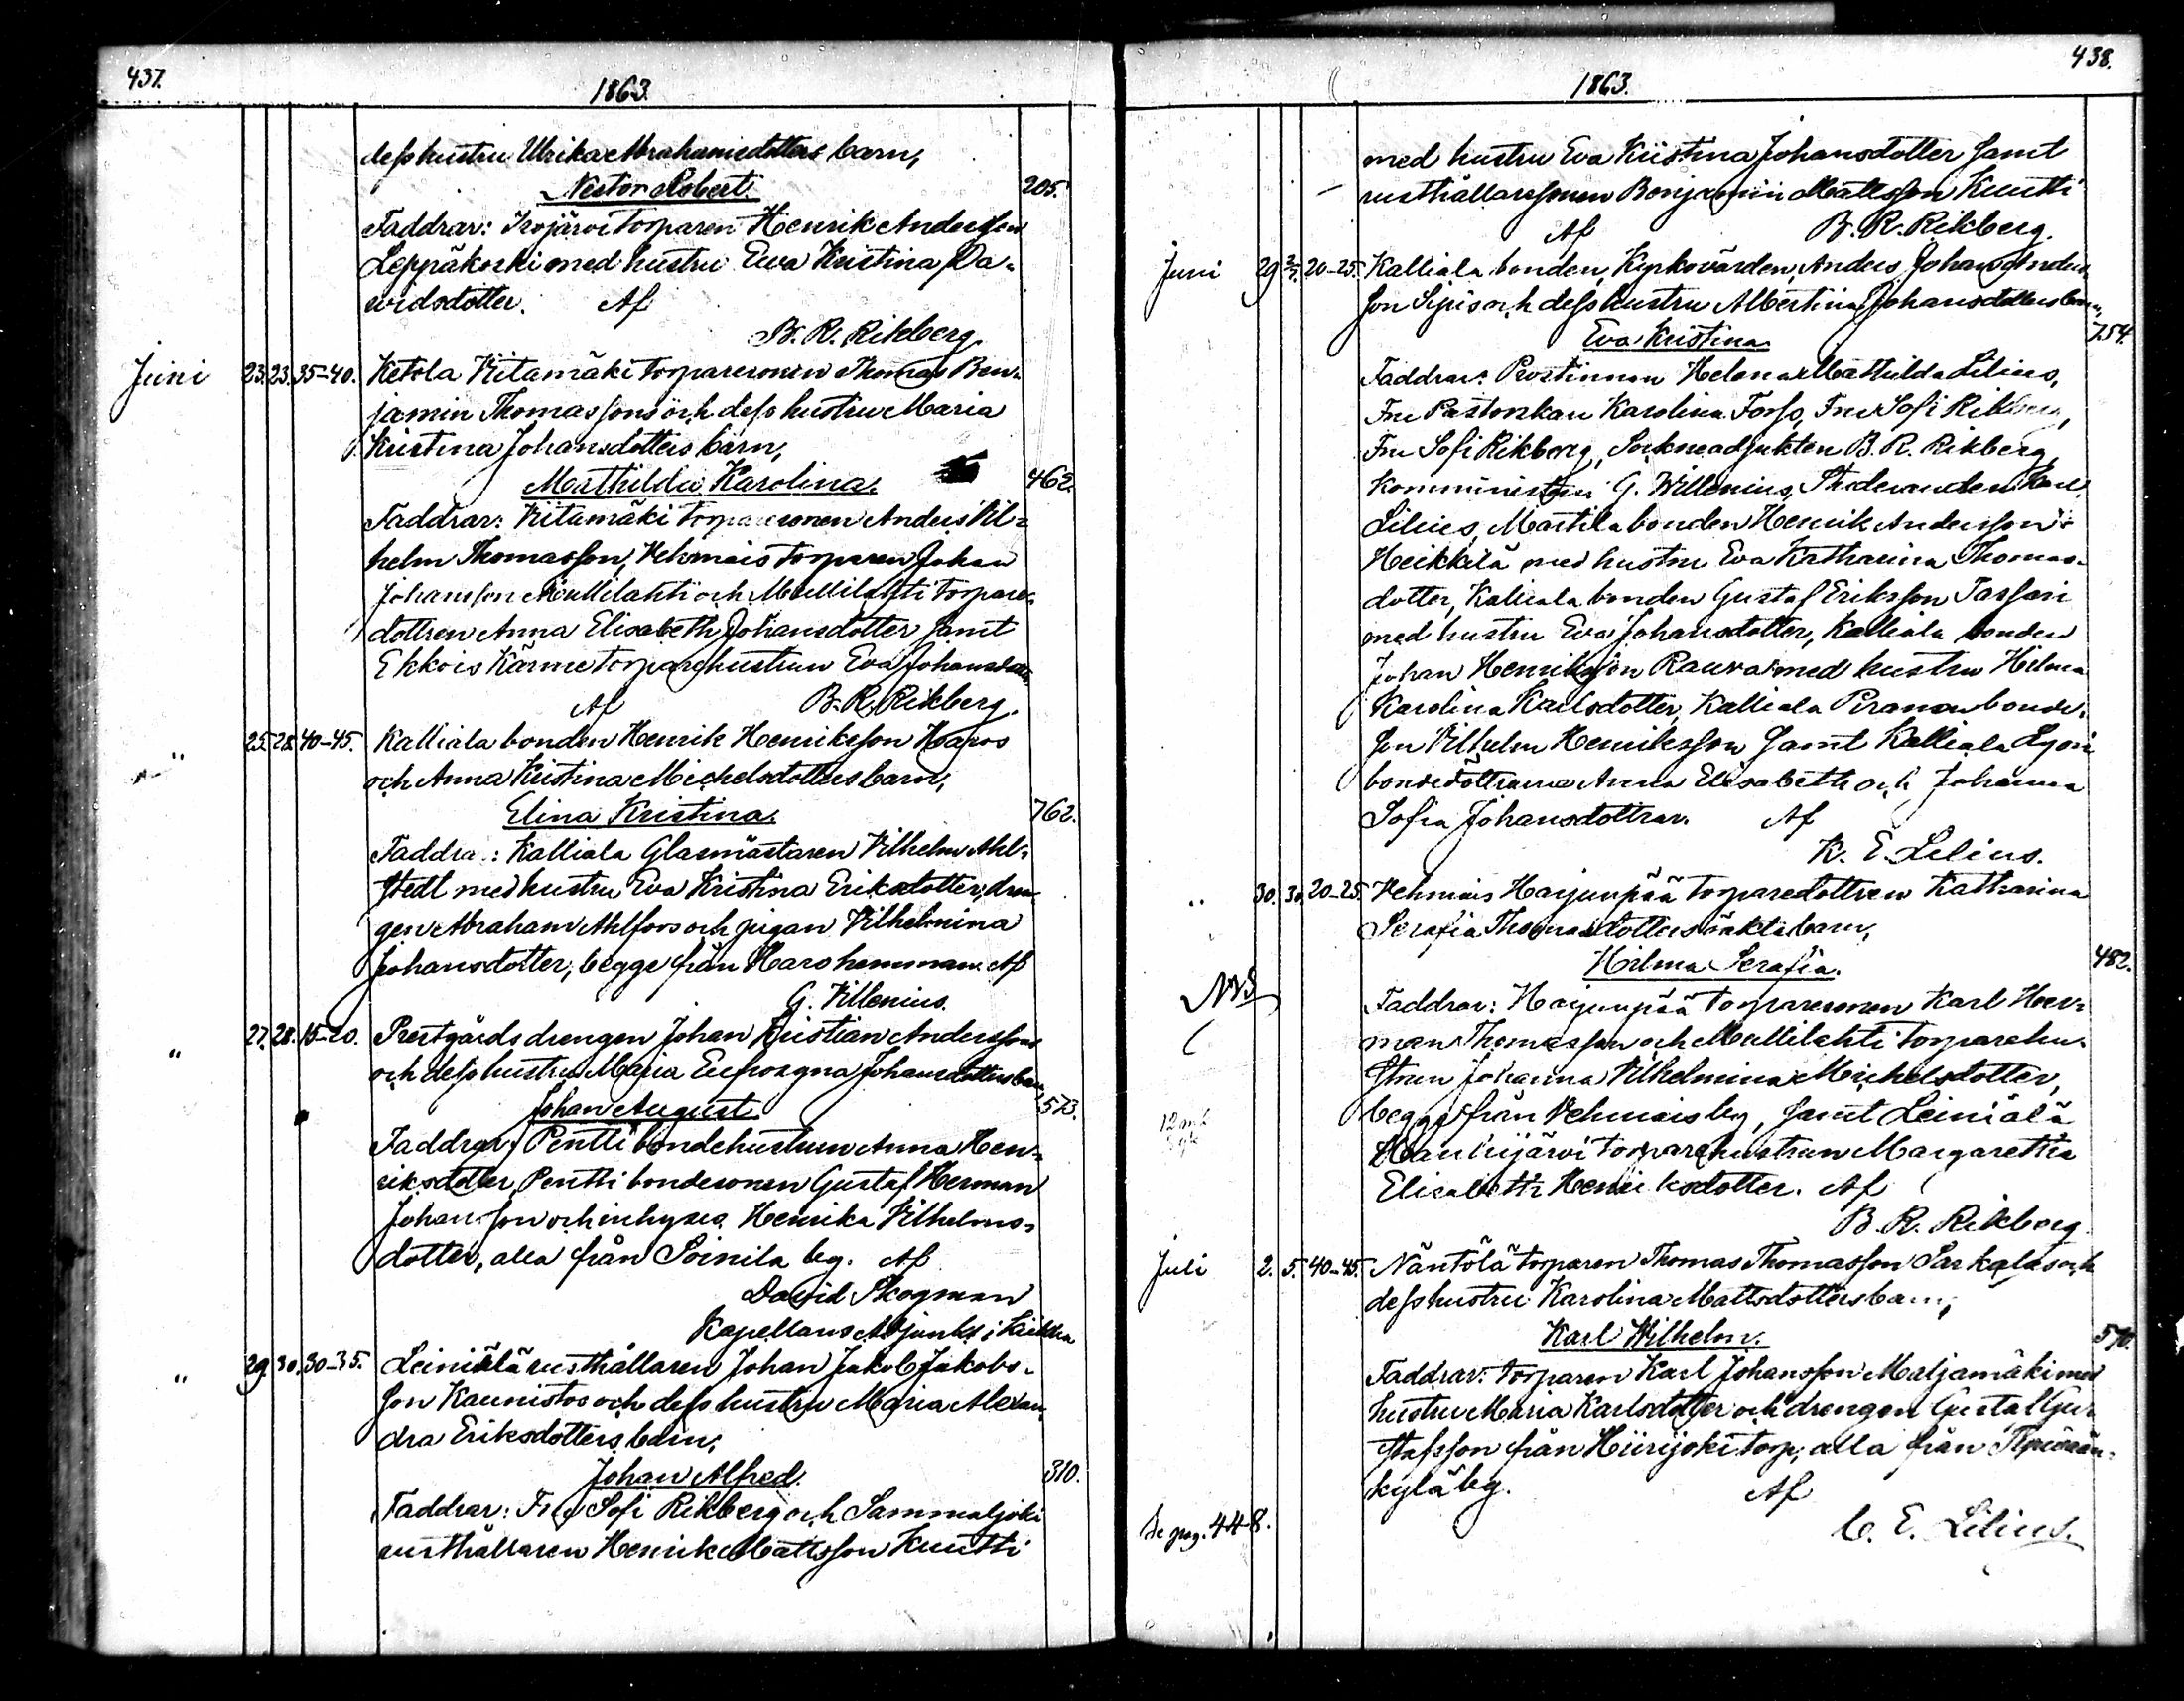 437.
1863.
dess hustru Ulrika Abrahamsdotters barn,
Nestor Robert. 205.
Faddrar: Isojärvi torparen Henrik Andersson
Leppäkoski med hustru Ewa Kristina Da-
vidsdotter. Af
B. R. Rikberg.
Juni 23. 23. 35-40. Ketola Kiitamäki torparesonen Thomas Ben-
jamin Thomassons och dess hustru Maria
Kristina Johansdotters barn,
Mathilda Karolina. 462.
Faddrar: Kiitamäki torparesonen Anders Vil-
helm Thomasson, Vehmais torparen Johan
Johansson Mullilahti och Mullilahti torpare-
dottren Anna Elisabeth Johansdotter samt
Ekkois Kärme torparehustrun Eva Johansdotter.
Af B. R. Rikberg.
" 25. 28. 40-45. Kalliala bonden Henrik Henriksson Haros
och Anna Kristina Michelsdotters barn,
Elina Kristina. 762.
Faddrar: Kalliala Glasmästaren Vilhelm Ahl-
stedt med hustru Eva Kristina Eriksdotter, dren-
gen Abraham Ahlfors och pigan Vilhelmina
Johansdotter, begge från Haro hemman. Af
G. Villenius.
" 27. 28. 15-20. Prestgårds drengen Johan Kristian Anderssons
och dess hustru Maria Eufrosyna Johansdotters barn,
Johan August. 573.
Faddrar: Pentti bondehustrun Anna Hen-
riksdotter, Pentti bondesonen Gustaf Herman
Johansson och inhyses Henrika Vilhelms-
dotter, alla från Soinila by. Af
David Skogman
Kapellans Adjunkt i
" 29. 30. 30-35. Leiniälä rusthållaren Johan Jakob Jakobs-
son Kaunistos och dess hustru Maria Alexan-
dra Eriksdotters barn,
Johan Alfred. 310.
Faddrar: Fru Sofi Rikberg och Sammaljoki
rusthållaren Henrik Mattsson Kuutti
438.
1863.
med hustru Eva Kristina Johansdotter samt
rusthållaressonen Benjamin Mattsson Kuutti
Af B. R. Rikberg.
Juni 29 20-25. Kalliala bonden, Kyrkovärden, Anders Johan Anders-
son Sipis och dess hustru Albertina Johansdotters barn,
Eva Kristina. 754.
Faddrar: Prostinnan Helena Mathilda Lilius,
Fru Pastorskan Karolina Forss, Fru Sofi Rikberg,
Fru Sofi Rikberg, Sockneadjukten B. R. Rikberg,
Kommministern G. Willenius, Studeranden Karl
Lilius, Marttila bonden Henrik Andersson
Heikkilä med hustru Eva Katharina Thomas-
dotter, Kalliala bonden Gustaf Eriksson Tassari
med hustru Eva Johansdotter, Kalliala bonden
Johan Henriksson Rauva med hustru Helena
Karolina Karlsdotter, Kalliala Piranen bonde-
son Vilhelm Henriksson samt Kalliala Lyoni
bondedöttrarna Anna Elisabeth och Johanna
Sofia Johansdöttrar. Af
K. E. Lilius.
" 30. 30. 20-25. Vehmais Harjunpää torparedottren Katharina
Serafia Thomasdotters oäkta barn,
Hilma Serafia. 482.
NB
Faddrar: Harjunpää torparesonen Karl Her-
man Thomasson och Mullilahti torparehu-
strun Johanna Vilhelmina Michelsdotter,
begge från Vehmais by, samt Leiniälä
Hauhijärvi torparehustrun Margaretha
Elisabeth Henriksdotter. Af
B. R. Rikberg
Juli 2. 5. 40-45. Näntölä torparen Thomas Thomasson Sarkalas och
dess hustru Karolina Mattsdotters barn,
Karl Wilhelm. 570.
Faddrar: torparen Karl Johansson Marjamäki med
hustru Maria Karlsdotter och drengen Gustaf Gu-
stafsson från Hiirijoki torp, alla från
kylä by. Af
C. E. Lilius.
Se pag. 448.